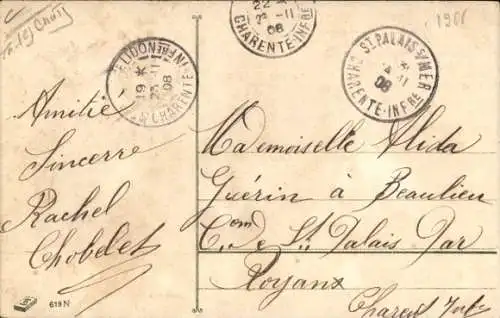 1908
22
2* - 11
08
CHARENTE-INFRE
19 *
23-11
08
CHARENTE-INFRE
ST PALAIS S/MER
11
08
CHARENTE-INFRE
Amitié
Sincerre
Rachel
Chobelet
Mademoiselle Alida
Guérin à Beaulieu
Com de St Palais Par
Royans
Charent Infr
619N